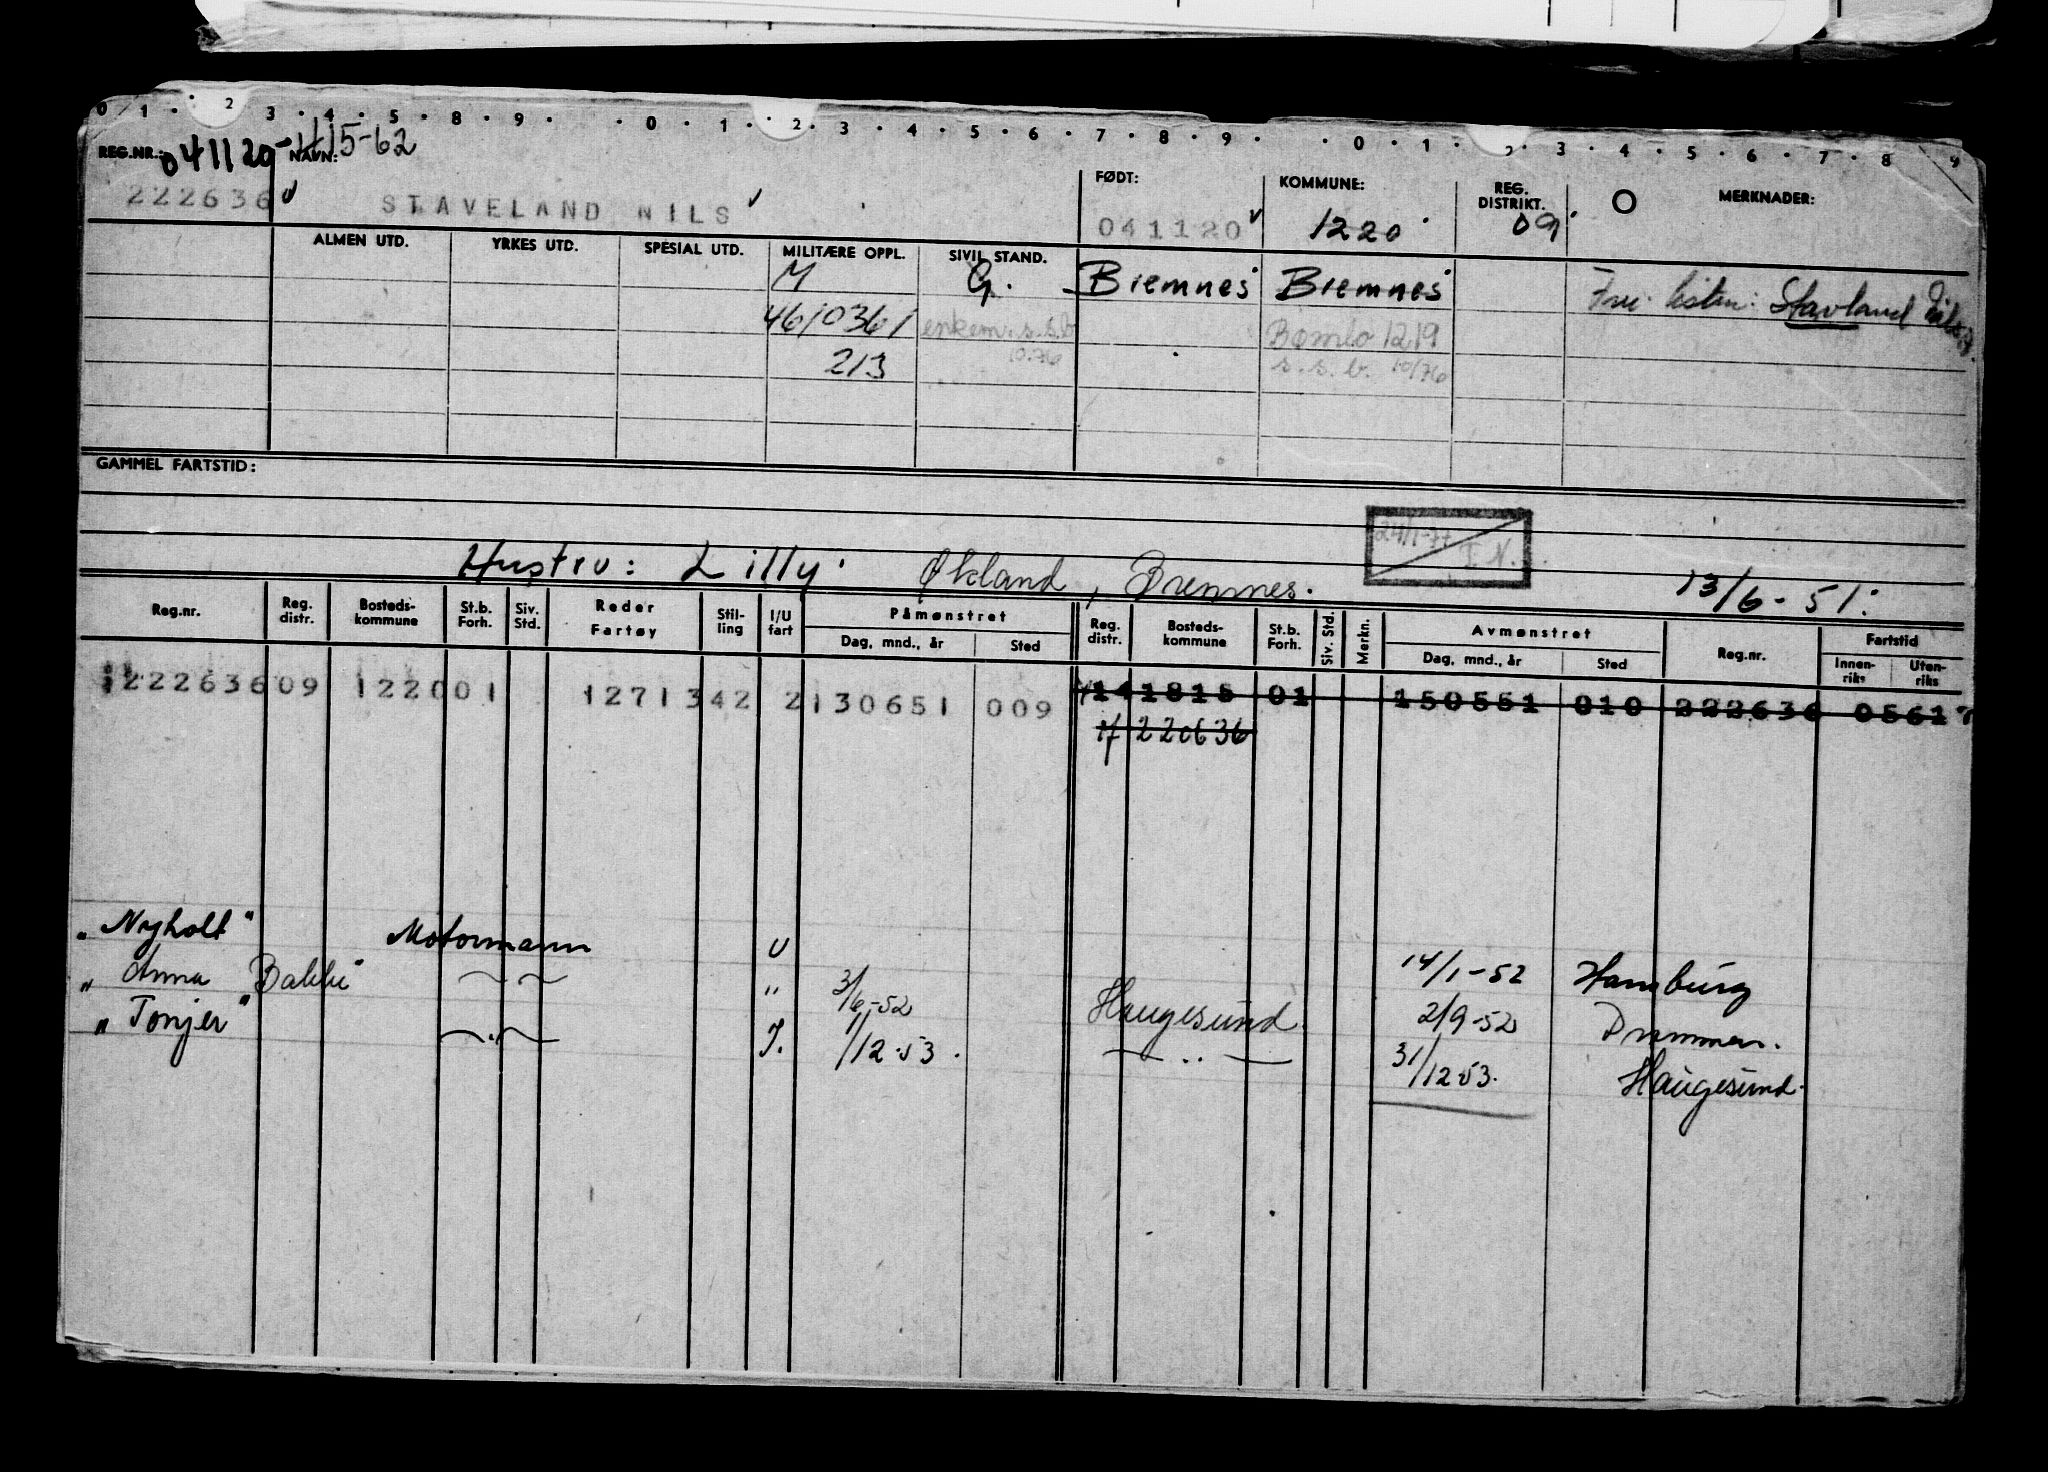 0 1 · 2 3 · 4 · 5 · 8 · 9 · · 0 · 1 · 2 · 3 · 4 · 5 · 6 · 7 · 8 · 9 · · 0 · 1 · 2 · 3 · 4 · 5 · 6 · 7 · 8 9
REG.NR.: 041120 NAVN: -H15-62
FØDT: KOMMUNE: REG. DISTRIKT. MERKNADER:
222636 STAVELAND NILS 041120 1220 09
ALMEN UTD. YRKES UTD. SPESIAL UTD. MILITÆRE OPPL. SIVIL STAND.
M G. Bremnes Bremnes Stavland
46/0361 enkem. s.s.b Bømlo 1219
213 10.76 s.s.b. 10/76
GAMMEL FARTSTID:
24/1-77 I N.
Hustru: Lilly Økland, Bremnes. 13/6-51.
Reg.nr. Reg. distr. Bosteds- kommune St.b. Forh. Siv. Std. Reder Fartøy Stil- ling I/U fart Påmønstret Reg. distr. Bosteds- kommune St.b. Forh. Siv. Std. Merkn. Avmønstret Reg.nr. Fartstid
Dag, mnd., år Sted Dag, mnd., år Sted Innen- riks Uten- riks
222636 09 1220 01 1271342 2 130651 009 141815 01 150551 010 222636 05617
17 220636
"Nyholt" Motormann U 14/1-52 Hamburg
"Anna Bakke" — " — " 3/6-52 Haugesund 2/9-52 Drammen.
"Tonjer" — " — I. 1/12-53. — " — 31/12-53. Haugesund.